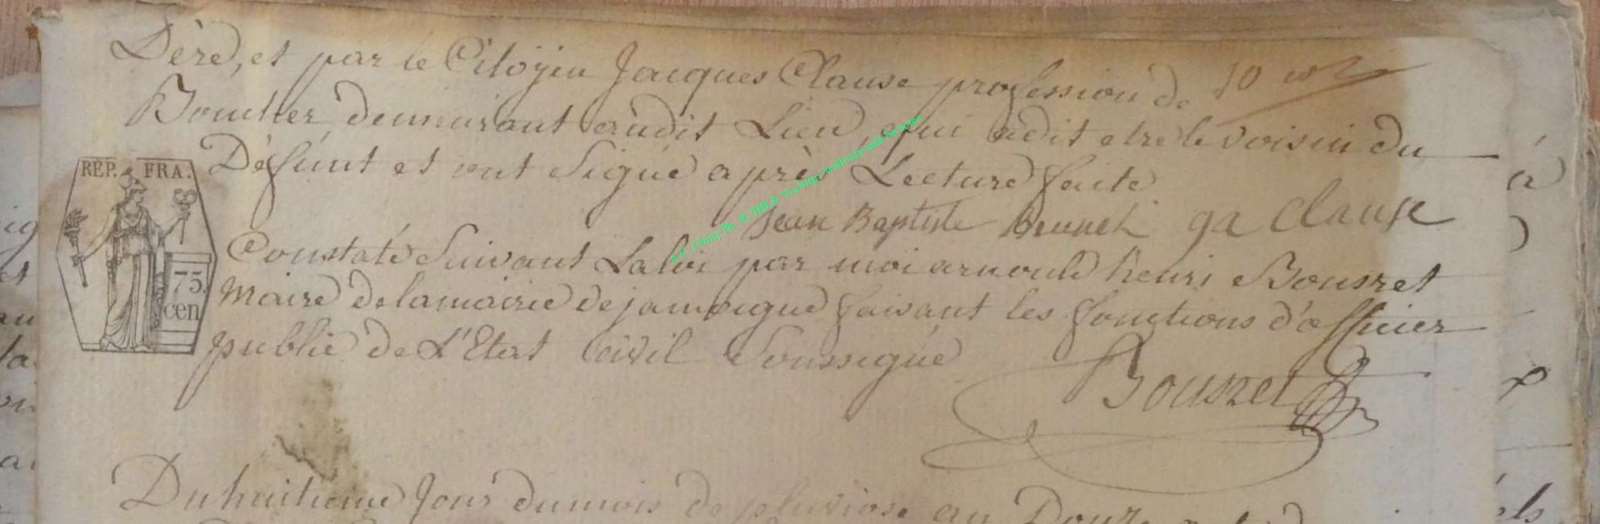 Dère, et par le Citoyen Jacques Clause profession de
Boucher demeurant audit Lieu, qui a dit etre le voisin du
Défunt et ont Signé après Lecture faite
Jean Baptiste ga clause
Constaté Suivant La loi par moi arnould henri Bousret
Maire de la mairie de jamoigne faisant les fonctions d'officier
public de L'Etat Civil Soussigné
Bousret
REP. FRA.
75
cen
Du huitieme Jour du mois de pluviose an Douze